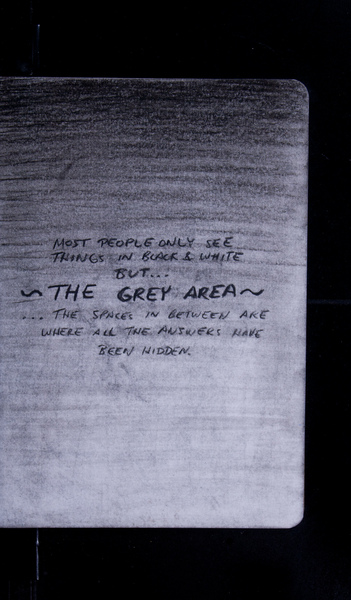 MOST PEOPLE ONLY SEE
THINGS IN BLACK & WHITE
BUT...
~THE GREY AREA~
... THE SPACES IN BETWEEN ARE
WHERE ALL THE ANSWERS HAVE
BEEN HIDDEN.